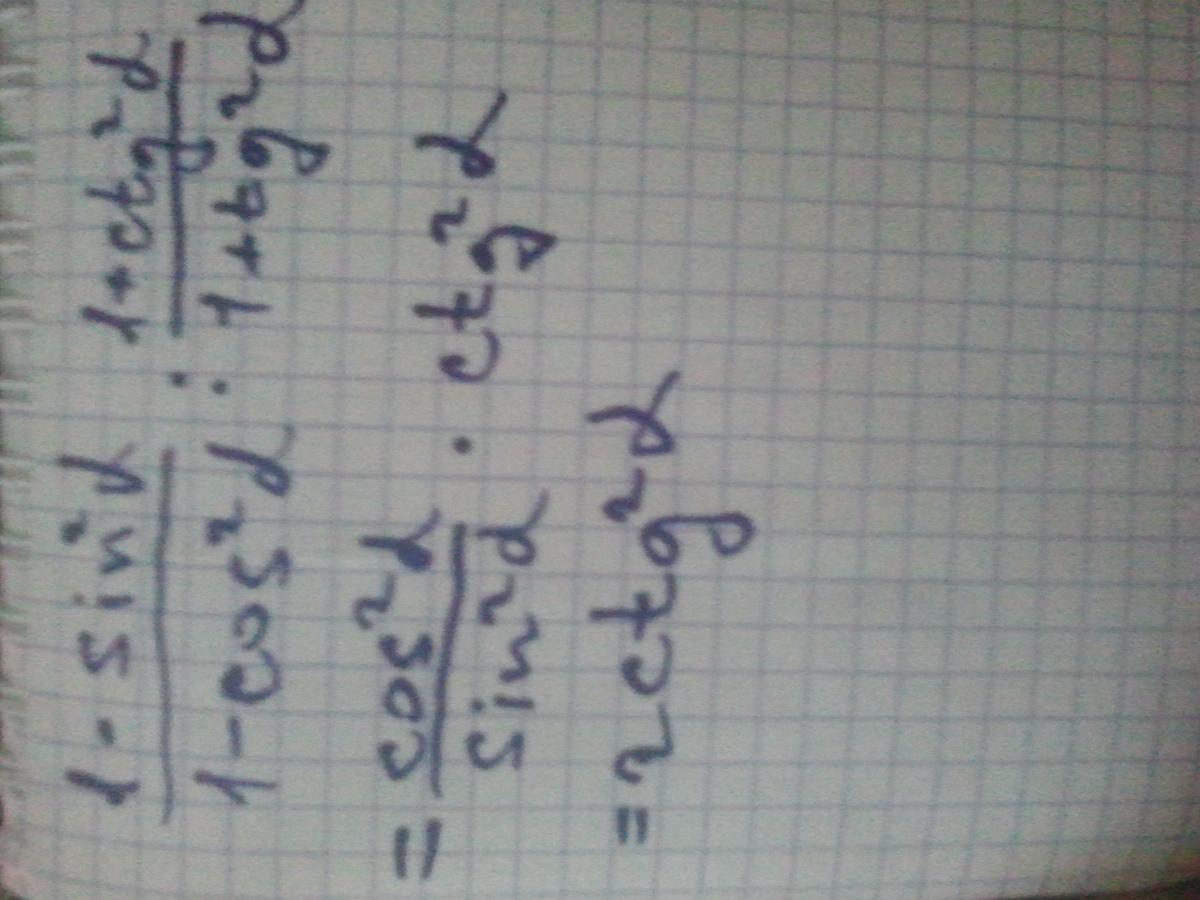 1 - sin²α / 1 - cos²α : 1 + ctg²α / 1 + tg²α
= cos²α / sin²α · ctg²α
= 2ctg²α